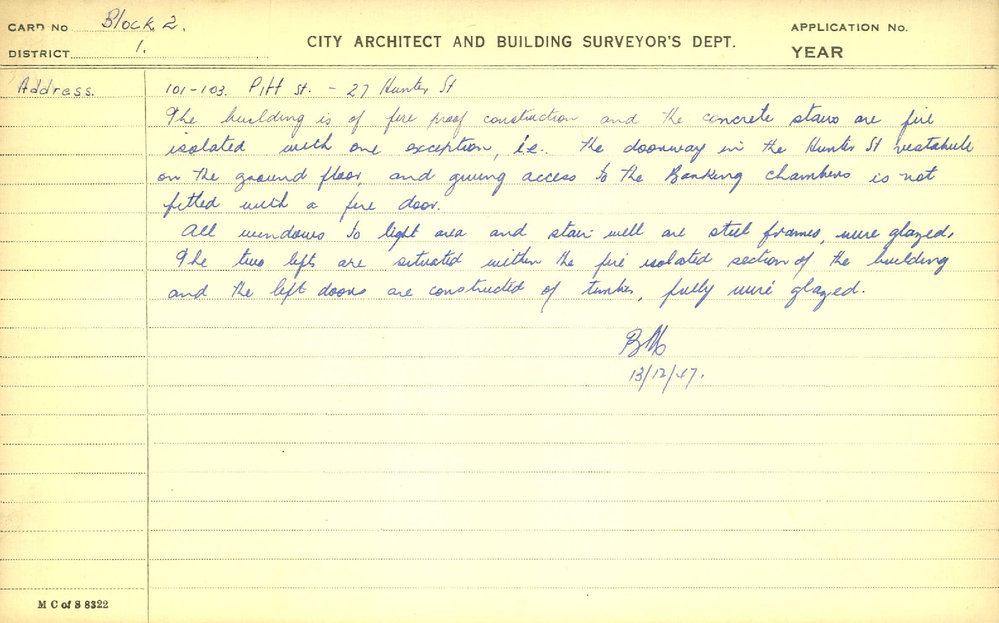 CARD No Block 2.
DISTRICT 1.
CITY ARCHITECT AND BUILDING SURVEYOR'S DEPT.
APPLICATION No.
YEAR
Address. 101-103. Pitt St. - 27 Hunter St
The building is of fire proof construction and the concrete stairs are fire
isolated with one exception, i.e. the doorway in the Hunter St vestabule
on the ground floor, and giving access to the Banking chambers is not
fitted with a fire door.
All windows to light area and stair well are steel frames, wire glazed.
The two lifts are situated within the fire isolated section of the building
and the lift doors are constructed of timber, fully wire glazed.
13/12/47.
M C of S 8322